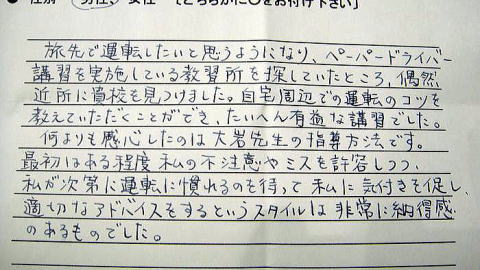 ● 性別 男性、女性 [どちらかに○をお付け下さい]
旅先で運転したいと思うようになり、ペーパードライバー
講習を実施している教習所を探していたところ、偶然
近所に貴校を見つけました。自宅周辺での運転のコツを
教えていただくことができ、たいへん有益な講習でした。
何よりも感心したのは大岩先生の指導方法です。
最初はある程度私の不注意やミスを許容しつつ、
私が次第に運転に慣れるのを待って私に気付きを促し、
適切なアドバイスをするというスタイルは非常に納得感
のあるものでした。